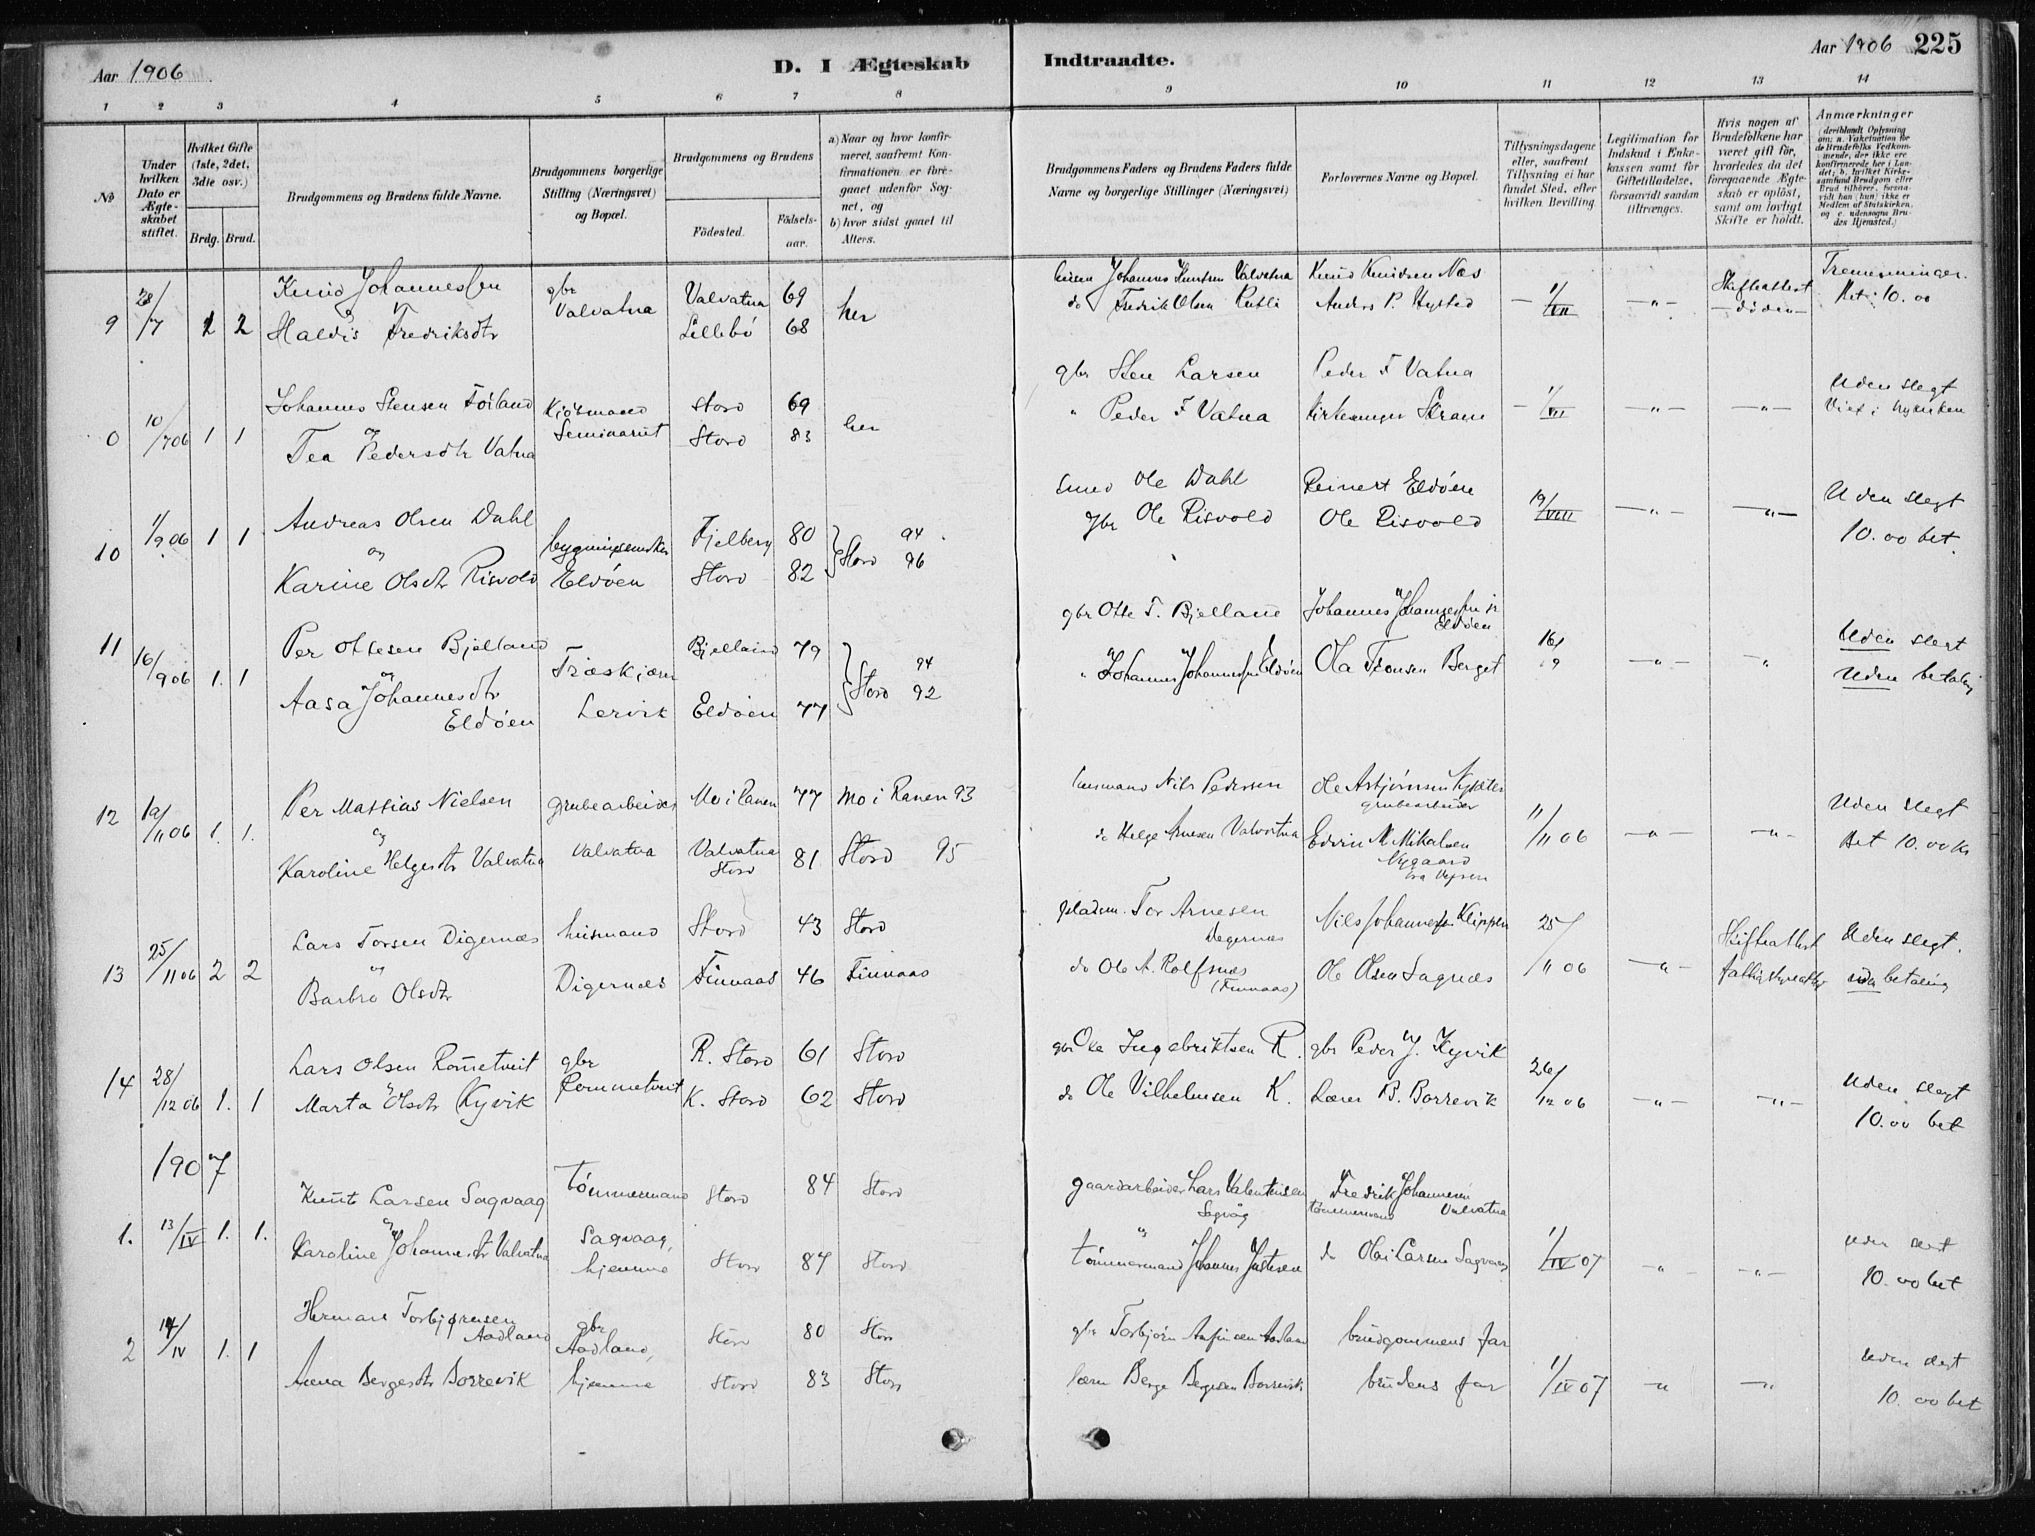 Aar 1906
D. I Ægteskab Indtraadte.
Aar 1906 225
1 2 3 4 5 6 7 8 9 10 11 12 13 14
No
Under hvilken Dato er Ægteskabet stiftet.
Hvilket Gifte (1ste, 2det, 3die osv.)
Brdg. Brud.
Brudgommens og Brudens fulde Navne.
Brudgommens borgerlige Stilling (Næringsvei) og Bopæl.
Brudgommens og Brudens
Födested. Födsels-aar.
a) Naar og hvor konfirmeret, saafremt Konfirmationen er foregaaet udenfor Sognet, og
b) hvor sidst gaaet til Alters.
Brudgommens Faders og Brudens Faders fulde Navne og borgerlige Stillinger (Næringsvei)
Forlovernes Navne og Bopæl.
Tillysningsdagene eller, saafremt Tillysning ei har fundet Sted, efter hvilken Bevilling.
Legitimation for Indskud i Enkekassen samt for Giftetilladelse, forsaavidt saadan tiltrænges.
Hvis nogen af Brudefolkene har været gift för, hvorledes da det foregaaende Ægteskab er oplöst, samt om lovligt Skifte er holdt.
Anmærkninger
9 28/7 2 2
Knud Johannessen
og
Haldis Fredriksdtr
gbr Valvatna
Valvatna 69
Lillebö 68
her
Johannes Knutsen Valvatna
do Fredrik Olsen Rutli
Knud Knudsen Næs
Anders P. Hysted
1/VII
Skifteattest
döden
Tremenninger.
Bet: 10.00
10/7 06 1 1
Johannes Stensen Föiland
og
Tea Pedersdtr Vatna
Seminariet
Stord 69
Stord 83
her
gbr Sten Larsen
" Peder F Vatna
Peder F Vatna
Kirkesanger Skram
1/VII
Uden slegt
Viet i kirken
10 1/9 06 1 1
Andreas Olsen Dahl
og
Karine Olsdtr Risvold
Eldöen
Fjelberg 80
Stord 82
Stord 94
96
Smed Ole Dahl
gbr Ole Risvold
Reinert Eldöen
Ole Risvold
19/VIII
Uden slegt
10.00 bet.
11 16/9 06 1. 1
Per Ottesen Bjelland
og
Aasa Johannesdtr
Eldöen
Træskjærer
Lervik
Bjelland 79
Eldöen 77
Stord 94
92
gbr Otte T. Bjelland
" Johannes Johannessen Eldöen
Johannes Johannessen jr
Eldöen
Ola Tronsen Berget
16/9
Uden slegt
Uden betaling
12 19/11 06 1. 1.
Per Mattias Nielsen
og
Karoline Helgesdtr Valvatna
grubearbeider
Valvatna
Mo i Ranen 77
Valvatna
Stord 81
Mo i Ranen 93
Stord 95
husmand Nils Pedersen
do Helge Arnesen Valvatna
grubearbeider
Edvin M. Mikalsen
Nygaard
11/11 06
Uden slegt
Bet 10.00 kr
13 25/11 06 2 2
Lars Torsen Digernæs
og
Barbro Olsdtr
husmand
Digernæs
Stord 43
Finnaas 46
Stord
Finnaas
pladsm. Tor Arnesen
Degernæs
do Ole A. Rolfsnæs
(Finnaas)
Nils Johannessen Klippen
Ole Olsen Sagnæs
25/11 06
Skifteattest
Uden slegt.
uden betaling
14 28/12 06 1. 1
Lars Olsen Rommetveit
og
Marta Olsdtr Kyvik
gbr
Rommetveit
R. Stord 61
K. Stord 62
Stord
Stord
gbr Ole Ingebriktsen R.
do Ole Vilhelmsen K.
gbr Peder J. Kyvik
Lærer B. Borrevik
26/12 06
Uden slegt
10.00 bet
1907
1. 13/IV 1. 1.
Knut Larsen Sagvaag
og
Karoline Johannesdtr Valvatna
tömmermand
Sagvaag,
hjemme
Stord 84
Stord 87
Stord
Stord
gaardarbeider Lars Valentinsen
Sagvåg
tömmermand Johannes Justesen
Fredrik Johannesen
tömmermand Valvatna
do Olai Larsen Sagvaag
1/IV 07
uden slegt
10.00 bet
2 14/IV 1. 1
Herman Torbjørnsen
Aadland
Anna Bergesdtr Borrevik
gbr
Aadland,
hjemme
Stord 80
Stord 83
Stord
Stord
gbr Torbjörn Anfindsen Aadland
lærer Berge Bergesen Borrevik
brudgommens far
brudens far
1/IV 07
uden slegt
10.00 bet